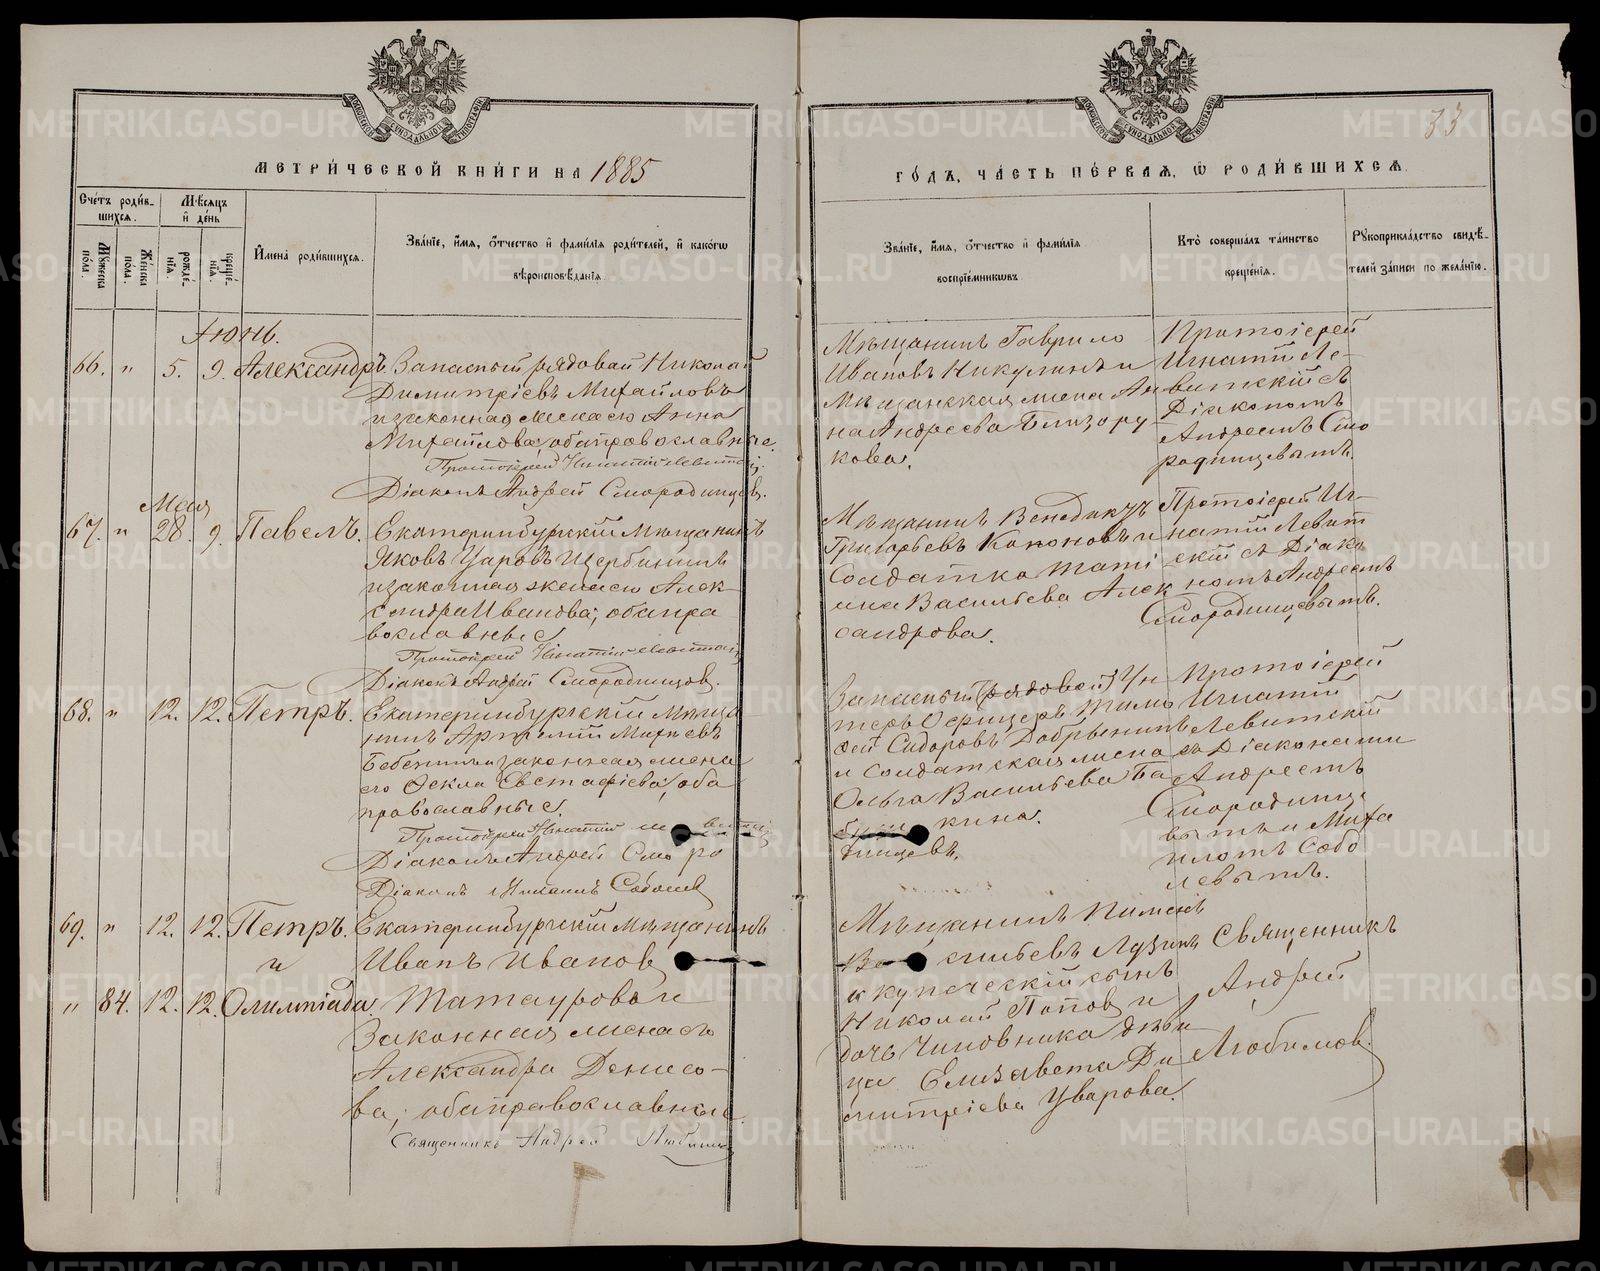 МЕТРИ́ЧЕСКОЙ КНИ́ГИ НА 1885
Сче́тъ роди́в-
шихся.
Мѣсяцъ
и де́нь
Му́жеска
по́ла.
Же́нска
по́ла.
рожде́-
нїя.
креще́-
нїя.
И́мена роди́вшихся.
Зва́нїе, и́мя, ѻ́тчество и фами́лїя роди́телей, и како́гѡ
вѣроисповѣ́данїя.
Іюнь.
66. " 5. 9. Александръ. Запасный рядовой Николай
Димитріевъ Михайловъ
и законная жена его Анна
Михайлова; оба православные.
Протоіерей Игнатій Левитскій.
Діаконъ Андрей Смородинцевъ.
Мая
67. " 28. 9. Павелъ. Екатеринбургскій Мѣщанинъ
Яковъ Уаровъ Щербининъ
и законная жена его Алек-
сандра Иванова; оба пра
вославные
Протоіерей Игнатій Левитскій
Діаконъ Андрей Смородинцовъ.
68. " 12. 12. Петръ. Екатеринбургскій Мѣща
нинъ Артемій Михѣевъ
и законная жена
его Ѳекла Евстафіева; оба
православные.
Протоіерей Игнатій Левитскій
Діаконъ Андрей Сморо
Діаконъ Михаилъ Соболев
69. " 12. 12. Петръ. Екатеринбургскій Мѣщанинъ
и Иванъ Иванов
" 84. 12. 12. Олимпіада. Татауров и
Законная жена его
Александра Денисо-
ва; оба православные
Священникъ Андрей Любимов
33
ГО́ДЪ, ЧА́СТЬ ПЕ́РВАЯ, Ѡ РОДИ́ВШИХСЯ.
Зва́нїе, и́мя, ѻ́тчество и фами́лїя
воспрїе́мникѡвъ
Кто̀ соверша́лъ та́инство
креще́нїя.
Рукоприкла́дство свидѣ́-
телей за́писи по жела́нїю.
Мѣщанинъ Гаврило
Ивановъ Никулинъ и
Мѣщанская жена Ан
на Андреева Близору
кова.
Протоіерей
Игнатій Ле-
витскій съ
Діакономъ
Андреемъ Смо
родинцевымъ.
Мѣщанинъ Венедиктъ
Григорьевъ Кононовъ и
Солдатка Тати
ана Васильева Алек
сандрова.
Протоіерей Иг-
натій Левит
скій съ Діако
номъ Андреемъ
Смородинцевымъ.
Запасный рядовой Ун
теръ Офицеръ Тимо
ѳей Сидоровъ Добрынинъ
и Солдатская жена
Ольга Васильева Ба
кина.
динцевъ.
Протоіерей
Игнатій
Левитскій
съ Діаконами
Андреемъ
Смородинце
вымъ и Миха
иломъ Собо
левымъ.
Мѣщанинъ Пименъ
Васильевъ Лузинъ
и купеческій сынъ
Николай Попов и
дочь Чиновника дѣви
ца Елизавета Ди
митріева Уварова.
Священникъ
Андрей
Любимов.
METRIKI.GASO-URAL.RU